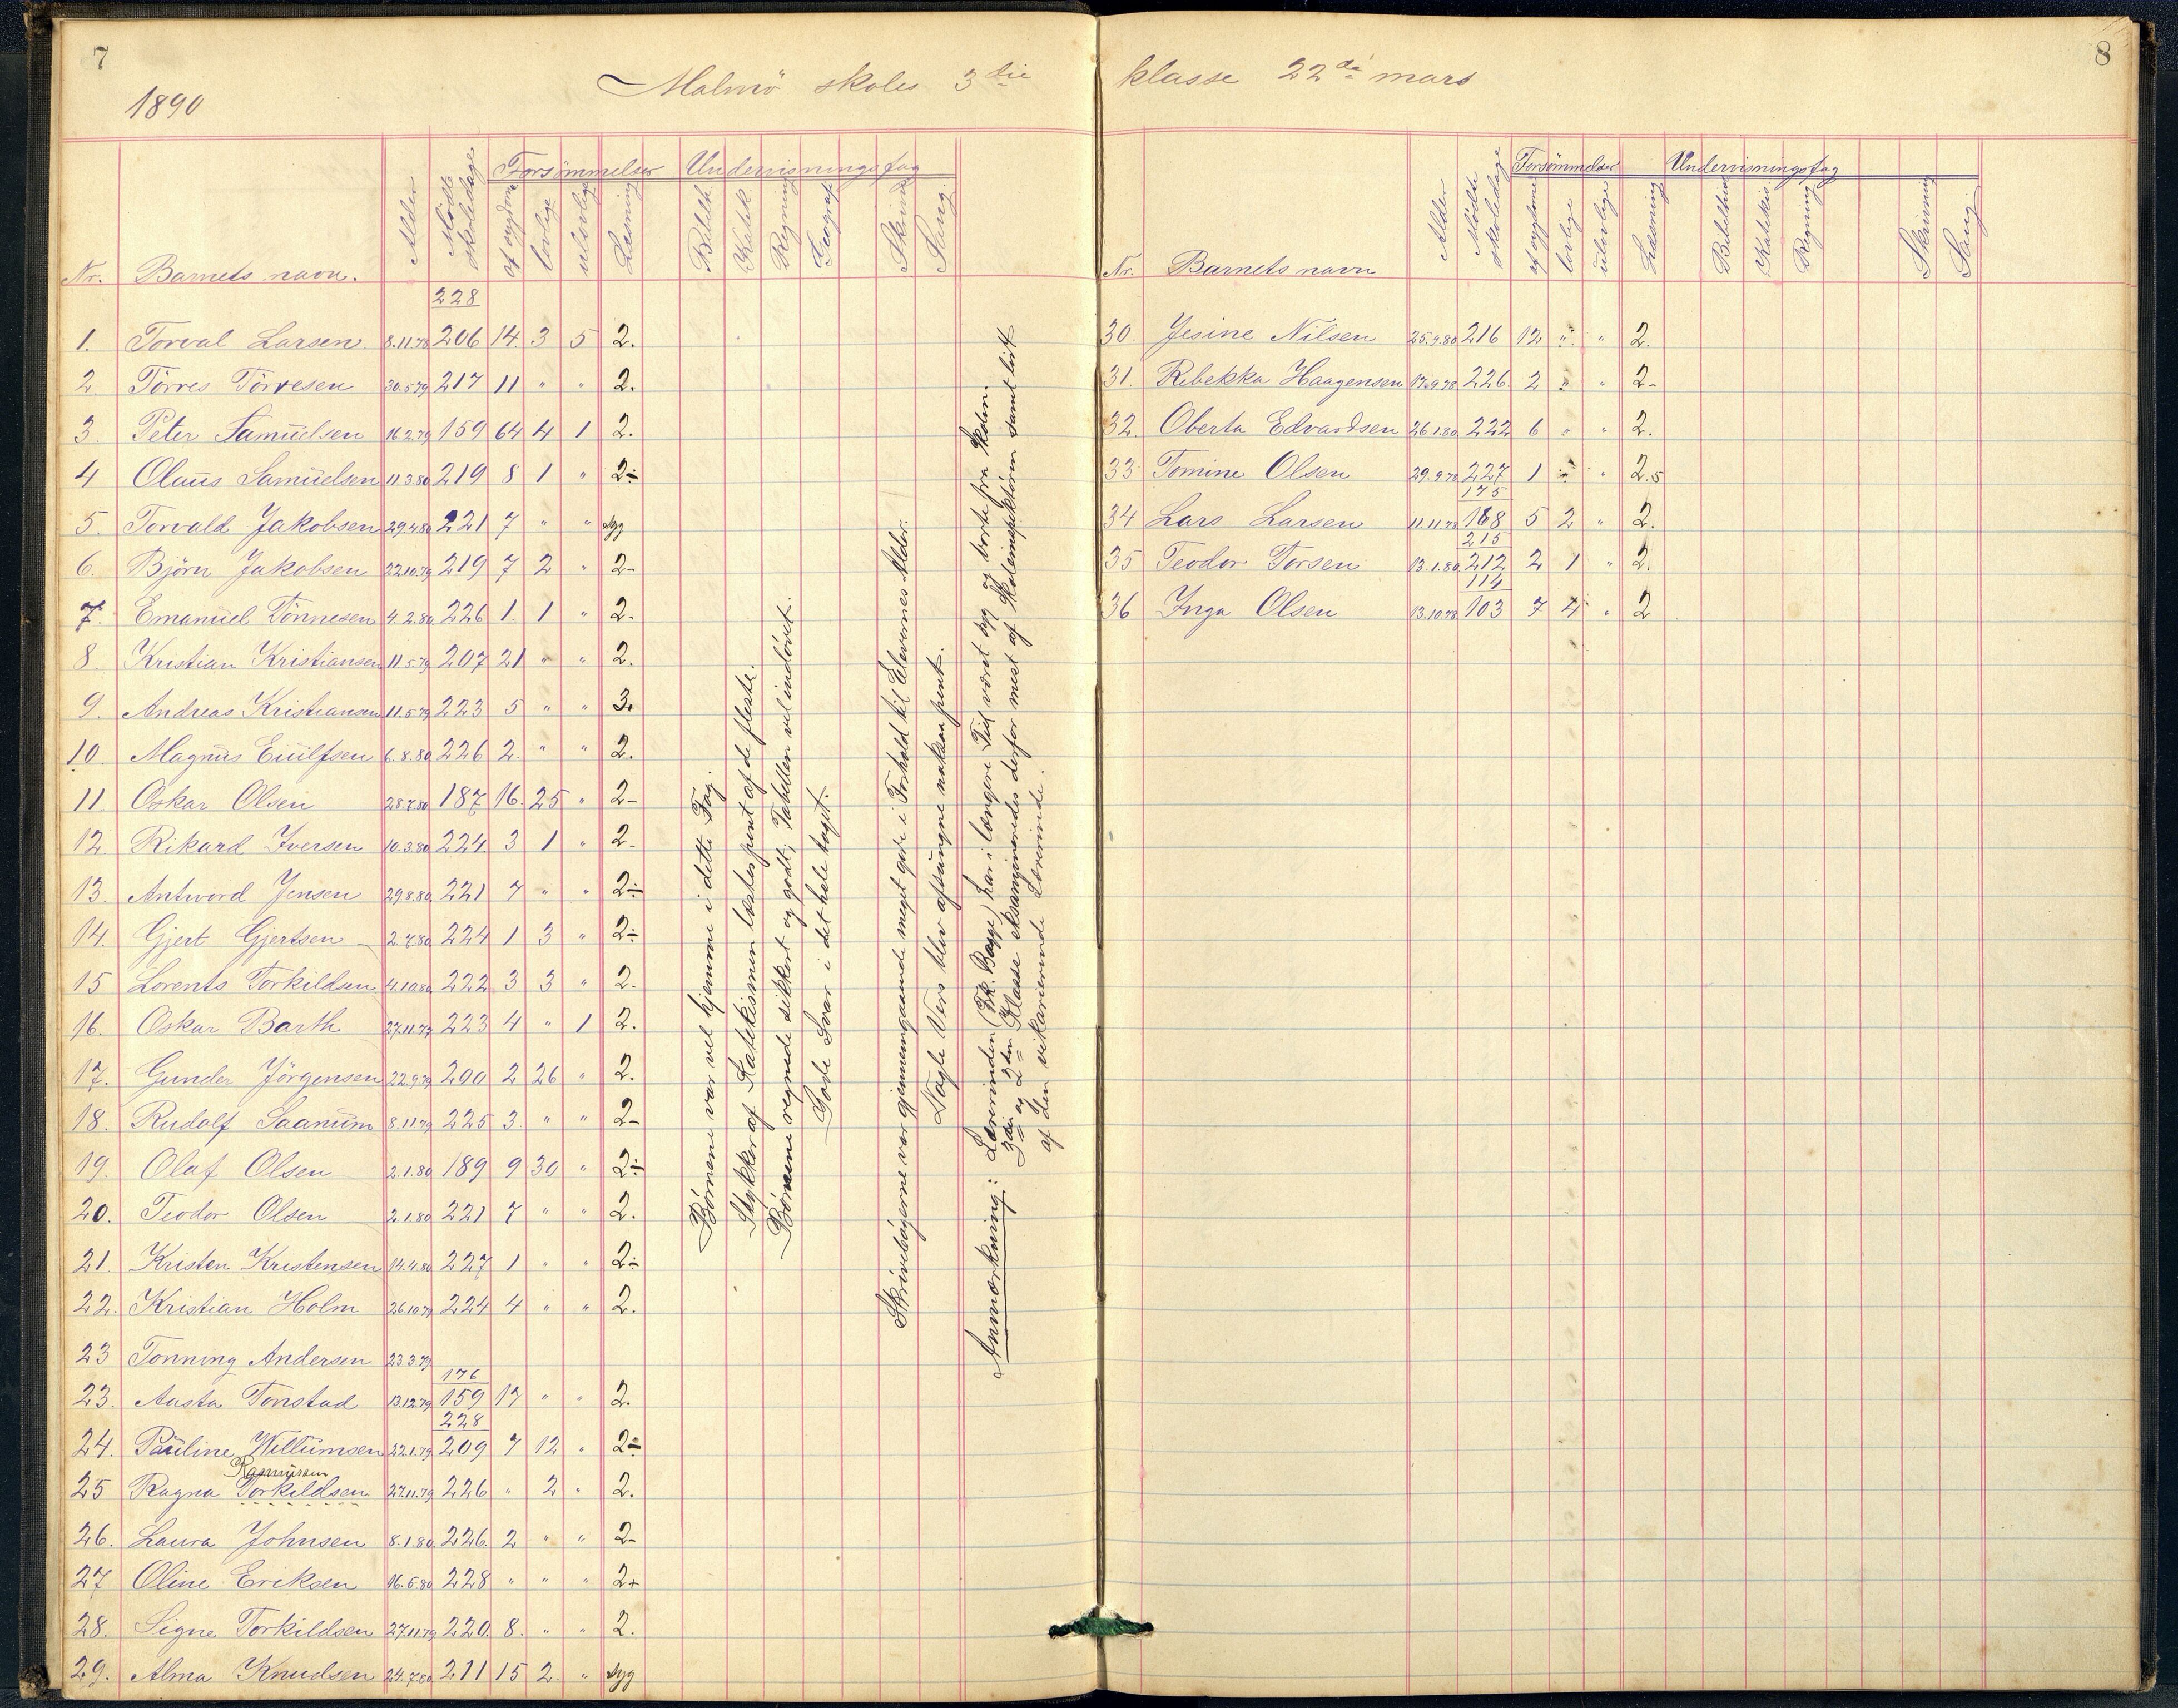 7
1890
Malmö skoles 3die
Nr.
Barnets navn.
Alder
Mödte skoledage
Forsömmelser
af sygdom
lovlige
ulovlige
Undervisningsfag
Læsning
Bibelh.
Katek.
Regning
Geografi
Skrivn.
Sang.
228
1. Torval Larsen 8.11.79 206 14. 3 5 2.
2. Törres Törresen 30.5.79 217 11 " " 2.
3. Peter Samuelsen 16.2.79 159 64 4 1 2.
4 Olaus Samuelsen 11.3.80 219 8 1 " 2÷
5. Torvald Jakobsen 29.4.80 221 7 " " syg
6. Björn Jakobsen 22.10.79 219 7 2 " 2-
7. Emanuel Tönnesen 4.2.80 226 1. 1 " 2-
8. Kristian Kristiansen 11.5.79 207 21 " " 2.
9. Andreas Kristiansen 11.5.79 223 5 " " 3+
10. Magnus Euilfsen 6.8.80 226 2. " " 2.
11 Oskar Olsen 28.7.80 187 16. 25 " 2-
12. Rikard Iversen 10.3.80 224 3 1 " 2-
13. Antword Jensen 29.8.80 221 7 " " 2÷
14. Gjert Gjertsen 2.7.80 224 1 3 " 2÷
15 Lorents Torkildsen 4.10.80 222 3 3 " 2-
16. Oskar Barth 27.11.79 223 4 " 1 2.
17. Gunder Jörgensen 22.9.79 200 2 26 " 2.
18. Rudolf Saanum 8.11.79 225 3. " " 2-
19. Olaf Olsen 2.1.80 189 9 30 " 2÷
20. Teodor Olsen 2.1.80 221 7 " " 2.
21 Kristen Kristensen 14.4.80 227 1 " " 2÷
22. Kristian Holm 26.10.79 224 4 " " 2.
23 Tonning Andersen 23.3.79
176
23. Aasta Tonstad 13.12.79 159 17 " " 2.
228
24. Pauline Willumsen 22.1.79 209 7 12 " 2÷
Rasmussen
25 Ragna Torkildsen 27.11.79 226 " 2 " 2.
26. Laura Johnsen 8.1.80 226. 2 " " 2-
27 Oline Eriksen 16.5.80 228 " " " 2+
28. Signe Torkildsen 27.11.79 220. 8. " " 2.
29. Alma Knudsen 24.7.80 211 15 2. " syg
Børnene var vel hjemme i dette Fag.
Stykker af Katekismen læstes pent af de fleste.
Børnene regnede sikkert og godt; Tabellen vel indøvet.
Gode Svar i det hele taget.
Skrivebøgerne var gjennemgaaende meget gode i Forhold til Elevernes Alder.
Nogle Vers blev afsungne noksaa pent.
Anmærkning: Lærerinden (Frk. Bagge) har i længere Tid været syg og borte fra Skolen.
3die og 2den Klasse eksamineredes derfor mest af Skoleinspektøren samt lidt
af den vikarierende Lærerinde.
8
klasse 22de mars
Nr.
Barnets navn
Alder
Mödte skoledage
Forsömmelser
af sygdom
lovlige
ulovlige
Undervisningsfag
Læsning
Bibelhist.
Katekis.
Regning
Skrivning
Sang
30. Jesine Nilsen 25.9.80 216 12 " " 2.
31. Rebekka Haagensen 17.9.78 226. 2 " " 2-
32. Oberta Edvardsen 26.1.80 222 6 " " 2.
33 Tomine Olsen 29.9.78 227 1 " " 2.5
175
34 Lars Larsen 11.11.78 168 5 2 " 2.
215
35 Teodor Torsen 13.1.80 212 2 1 " 2.
114
36 Inga Olsen 13.10.78 103 7 4 " 2